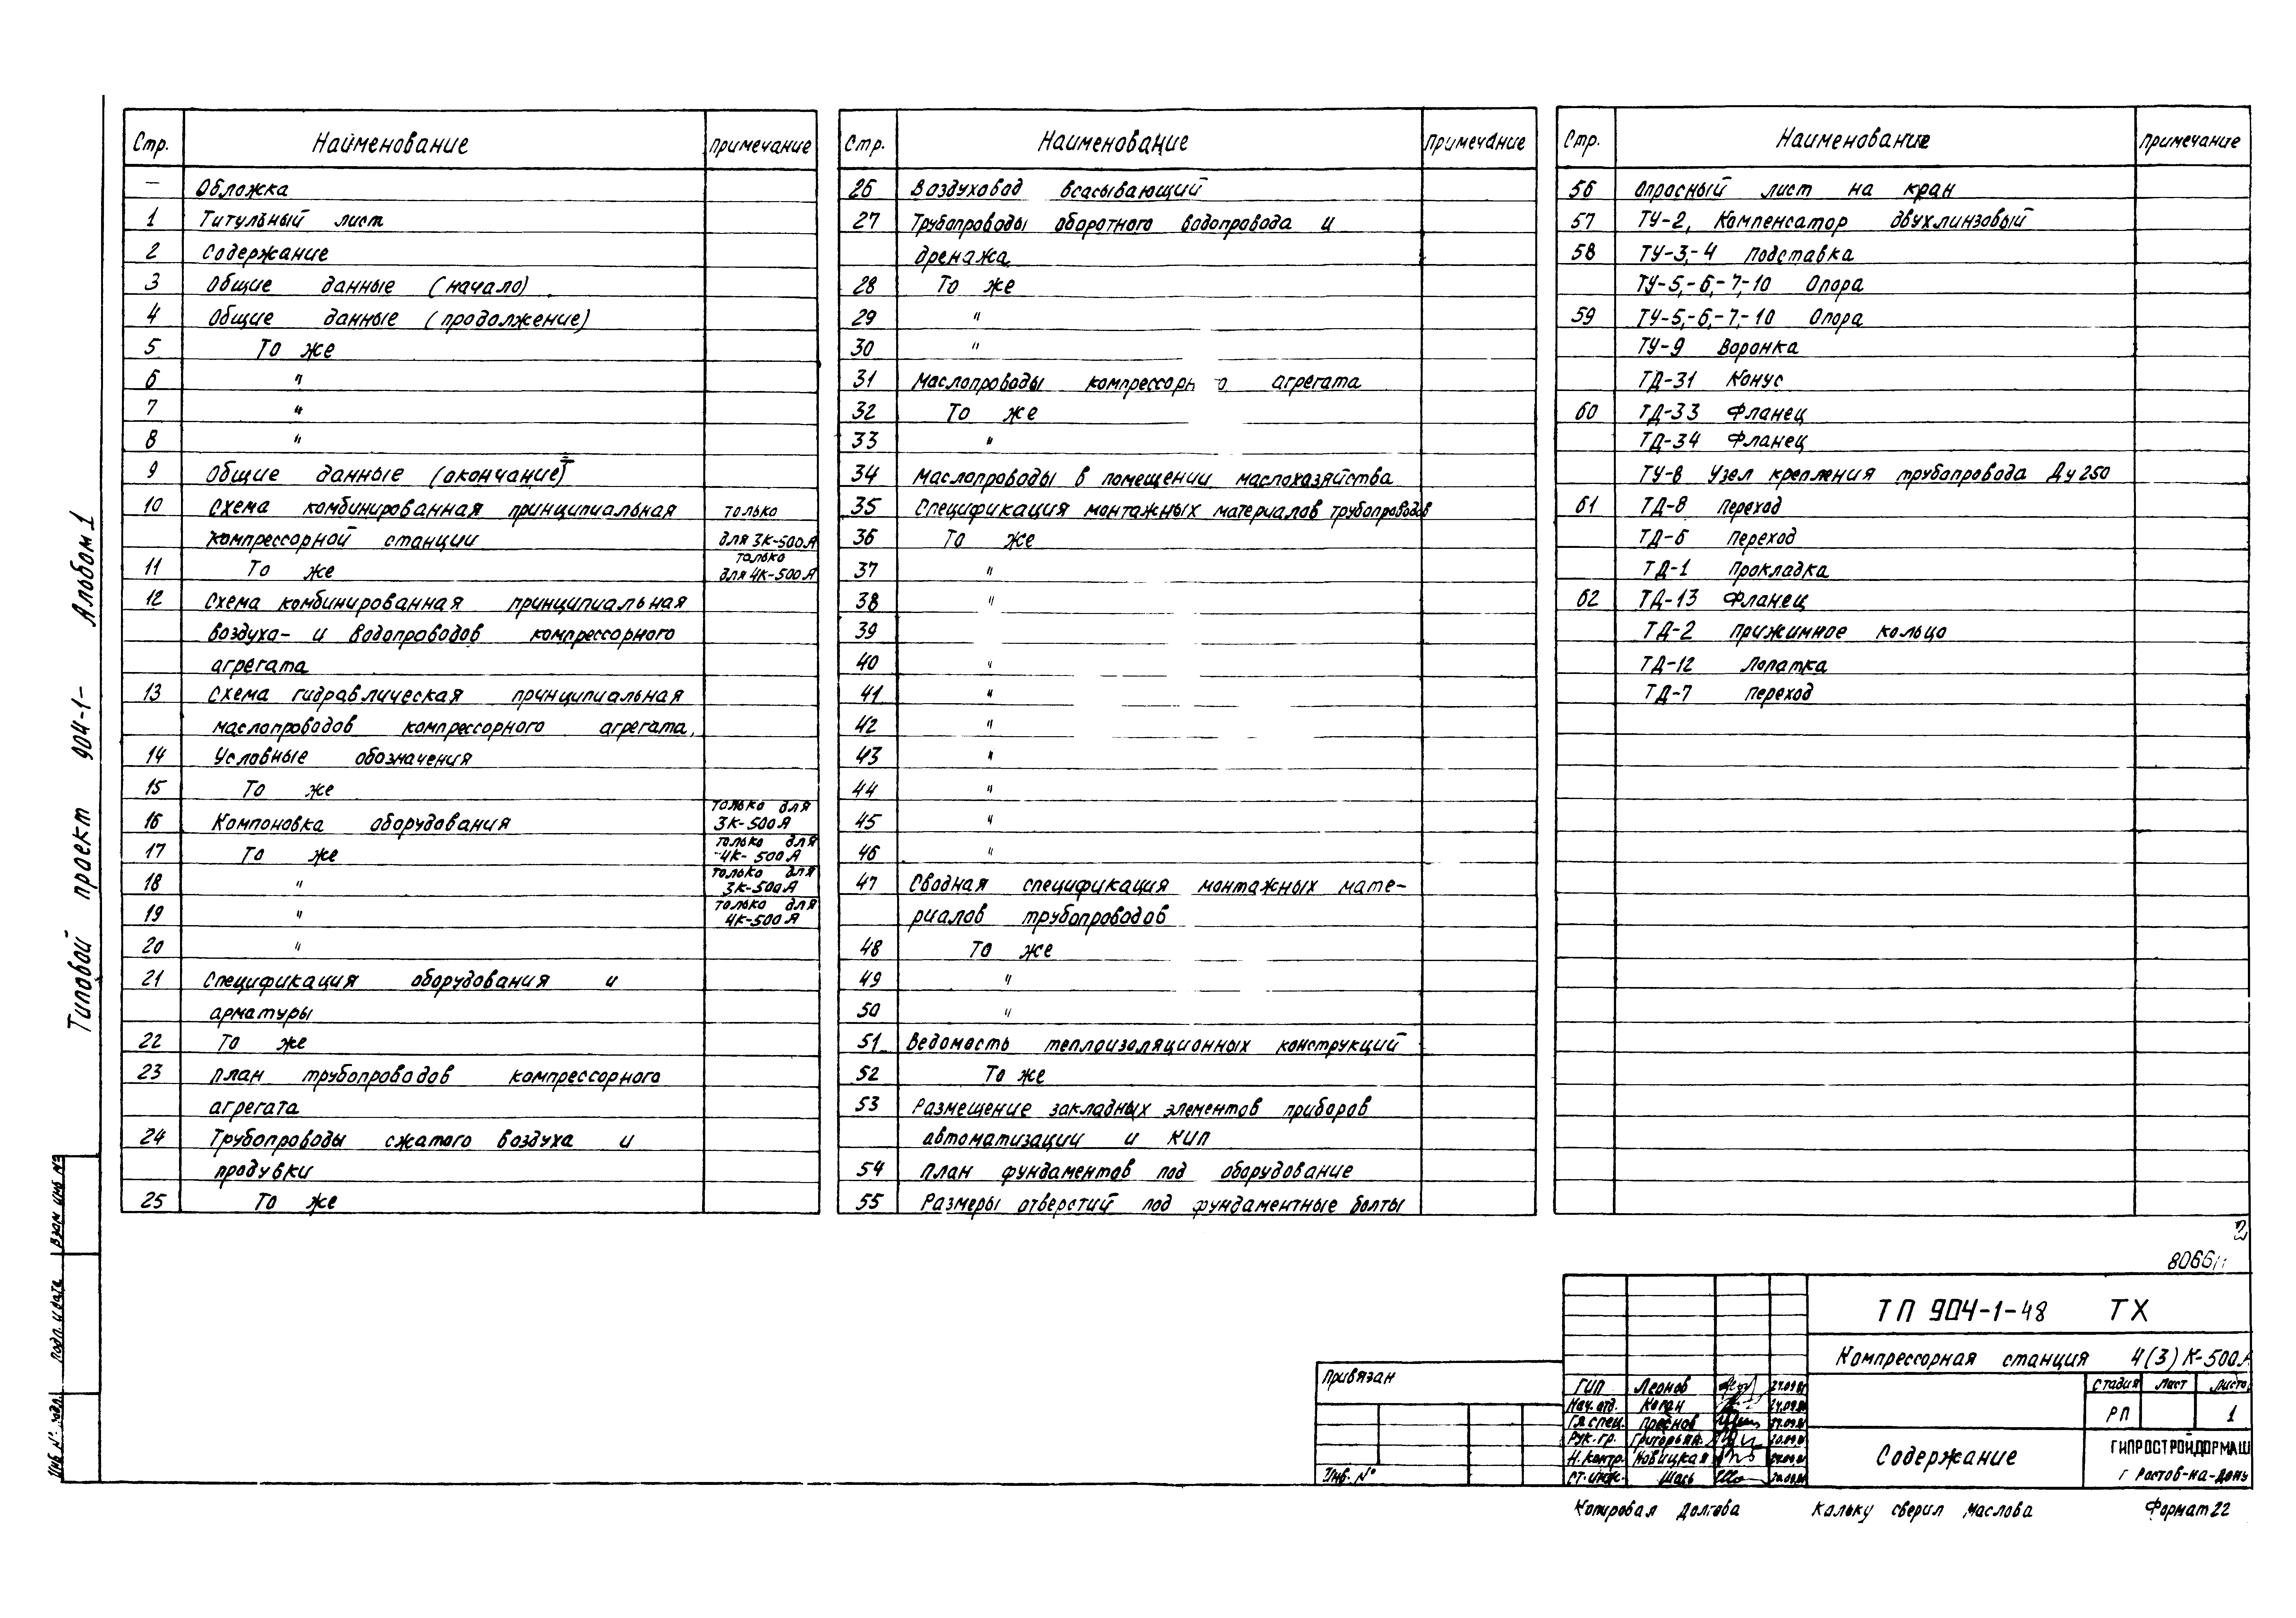 Типовой проект 904-1- Альбом 1
Стр. Наименование Примечание
— Обложка
1 Титульный лист
2 Содержание
3 Общие данные (начало)
4 Общие данные (продолжение)
5 То же
6 "
7 "
8 "
9 Общие данные (окончание)
10 Схема комбинированная принципиальная только
компрессорной станции для 3К-500А
11 То же только для 4К-500А
12 Схема комбинированная принципиальная
воздухо- и водопроводов компрессорного
агрегата
13 Схема гидравлическая принципиальная
маслопроводов компрессорного агрегата.
14 Условные обозначения
15 То же
16 Компоновка оборудования только для 3К-500А
17 То же только для 4К-500А
18 " только для 3К-500А
19 " только для 4К-500А
20 "
21 Спецификация оборудования и
арматуры
22 То же
23 План трубопроводов компрессорного
агрегата
24 Трубопроводы сжатого воздуха и
продувки
25 То же
Стр. Наименование Примечание
26 Воздуховод всасывающий
27 Трубопроводы оборотного водопровода и
дренажа
28 То же
29 "
30 "
31 Маслопроводы компрессорн о агрегата
32 То же
33 "
34 Маслопроводы в помещении маслохозяйства
35 Спецификация монтажных материалов трубопроводов
36 То же
37 "
38 "
39
40 "
41 "
42 "
43 "
44 "
45 "
46 "
47 Сводная спецификация монтажных мате-
риалов трубопроводов
48 То же
49 "
50 "
51 Ведомость теплоизоляционных конструкций
52 То же
53 Размещение закладных элементов приборов
автоматизации и КИП
54 План фундаментов под оборудование
55 Размеры отверстий под фундаментные болты
Стр. Наименование Примечание
56 Опросный лист на кран
57 ТУ-2, Компенсатор двухлинзовый
58 ТУ-3,-4 Подставка
ТУ-5,-6,-7,-10 Опора
59 ТУ-5,-6,-7,-10 Опора
ТУ-9 Воронка
ТД-31 Конус
60 ТД-33 Фланец
ТД-34 Фланец
ТУ-8 Узел крепления трубопровода Ду 250
61 ТД-8 Переход
ТД-6 Переход
ТД-1 Прокладка
62 ТД-13 Фланец
ТД-2 Прижимное кольцо
ТД-12 Лопатка
ТД-7 Переход
2
8066/1
ТП 904-1-48 ТХ
Компрессорная станция 4(3)К-500А
Стадия Лист Листов
РП 1
Содержание
ГИПРОСТРОЙДОРМАШ
г Ростов-на-Дону
ГИП Леонов
Нач. отд. Коган
Гл спец. Преснов
Рук. гр.
Н. контр. Новицкая
Ст. инж. Шась
Привязан
Инв. №
Взам инв №
Подп. и дата
Инв № подл.
Копировал Долгова Кальку сверил Маслова Формат 22